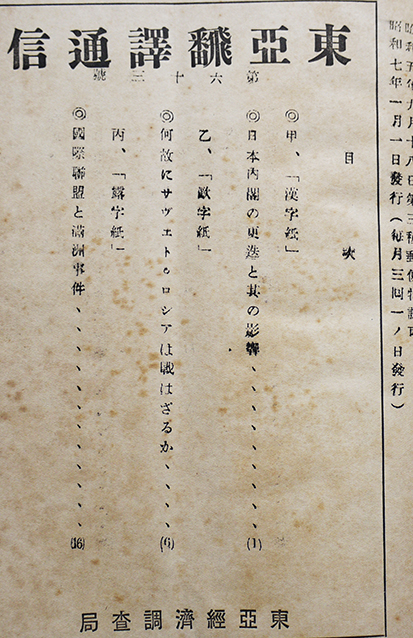 昭和五年八月十八日第三種郵便物認可
昭和七年一月一日發行(每月三回一ノ日發行)
東亞飜譯通信
第六十三號
目次
甲、「漢字紙」
◎日本內閣の更迭と其の影響、、、、、、、、、、、(1)
乙、「歐字紙」
◎何故にサヴエート・ロシアは戰はざるか、、、、、(6)
丙、「露字紙」
◎國際聯盟と滿洲事件、、、、、、、、、、、、、(16)
東亞經濟調査局